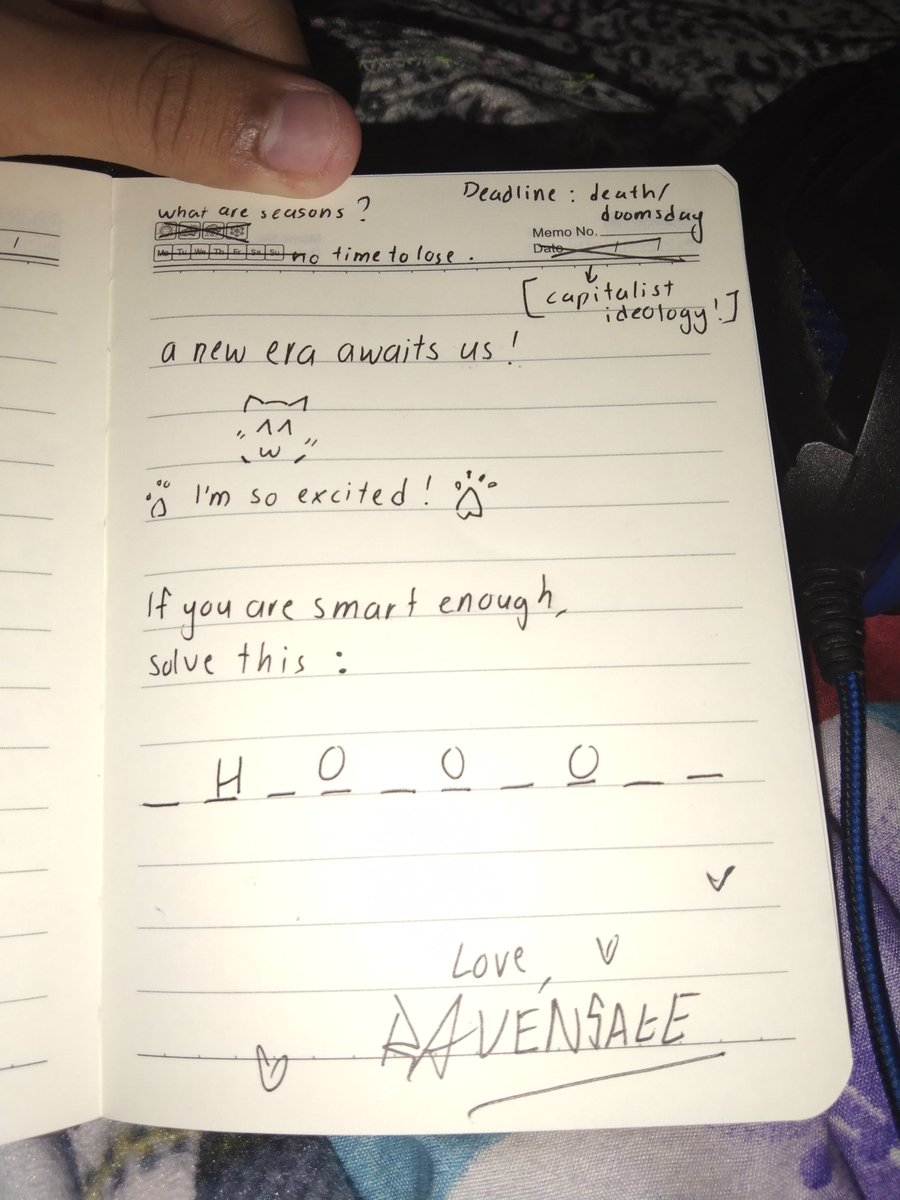 what are seasons ?
Deadline : death/
doomsday
Memo No.
Mo Tu We Th Fr Sa Su no time to lose .
Date / /
[capitalist
ideology!]
a new era awaits us !
I'm so excited !
If you are smart enough,
solve this :
_ H _ O _ O _ O _ _
Love,
RAVENSAGE